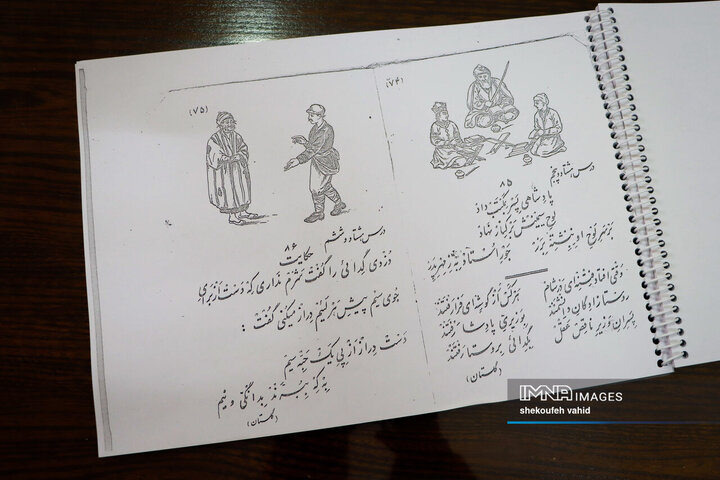 (۷۴)
درس هشتاد و پنجم
۸۵
پادشاهی پسر بمکتب داد
لوح سیمینش برکنار نهاد
بر سر لوح او نبشته بزر
جور استاد به ز مهر پدر
وقتی افتاد فتنه‌ای در شام
هر کس از گوشه‌ای فرا رفتند
روستا زادگان دانشمند
بوزیری پادشا رفتند
پسران وزیر ناقص عقل
بگدائی بروستا رفتند
(گلستان)
(۷۵)
درس هشتاد و ششم
۸۶
حکایت
دزدی گدائی را گفت شرم نداری که دست از برای
جوی سیم پیش هر لئیم دراز میکنی گفت :
دست دراز از پی یک حبه سیم
به که ببرند بدانگی و نیم
(گلستان)
IMNA IMAGES
shekoufeh vahid